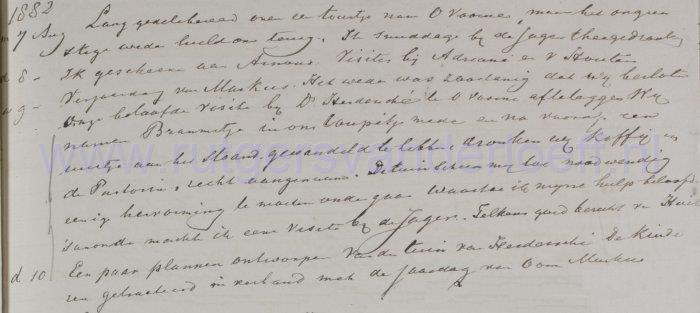 1882
m 7 Aug Lang gedelibereerd over een tourtje naar O Voorne, maar het ongun
stige weder hield ons terug. Ik smiddags bij de Jager theegedronken
d 8 - Ik geschreven aan Arnous. Visites bij Adriani en v Houten
Verjaardag van Markus. Het weder was zoodanig dat wij besloten
w 9 - onze beloofde visite bij Dr Heidenché te O Voorne afteleggen Wij
name Brammetje in ons Coupétje mede en na vooraf een
uurtje aan het strand gewandeld te hebben, dronken wij koffij in
de Pastorie, recht aangenaam. De tuin scheen mij toe noodwendig
eenige hervorming te moeten ondergaan waartoe ik mijne hulp beloofde
S'avonds macht ik een visite bij de Jagers. Telkens goed bericht v Houte
d 10 Een paar plannen ontworpen van de tuin van Heidensché De kinde
ren getracteerd in verband met de jaardag van Oom Markus
www.rutgersvanderloeff.nl